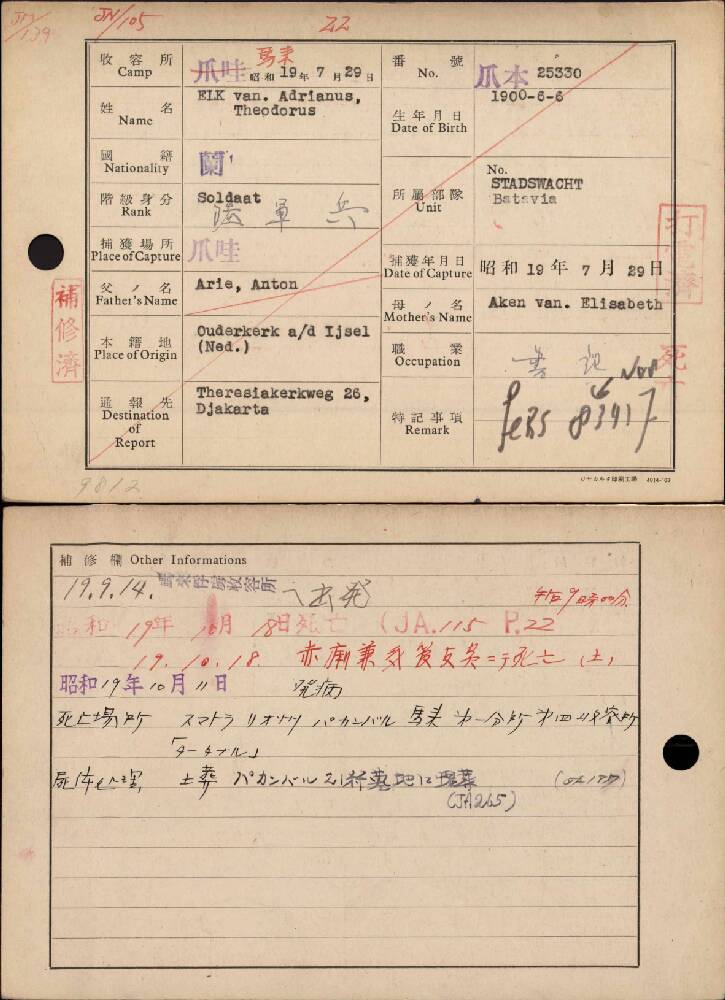 JN/105
22
收容所 Camp 爪哇 馬来 昭和19年7月29日
番號 No. 爪本 25330
姓名 Name ELK van. Adrianus,
Theodorus
生年月日 Date of Birth 1900-6-6
國籍 Nationality 蘭
階級身分 Rank Soldaat
陸軍 兵
所屬部隊 Unit No.
STADSWACHT
Batavia
捕獲場所 Place of Capture 爪哇
捕獲年月日 Date of Capture 昭和19年7月29日
父ノ名 Father's Name Arie, Anton
母ノ名 Mother's Name Aken van. Elisabeth
本籍地 Place of Origin Ouderkerk a/d Ijsel
(Ned.)
職業 Occupation 書記
通報先 Destination of Report Theresiakerkweg 26,
Djakarta
特記事項 Remark
補修濟
9812
補修欄 Other Informations
19.9.14. 馬来俘虜收容所へ出発
昭和19年10月18日死亡 (JA.115 P.22
19.10.18
昭和19年10月11日 発病
死亡場所 スマトラ リオウ州 パカンバル 馬来第一分所第四收容所
屍体処理 土葬 パカンバル
(JA265)